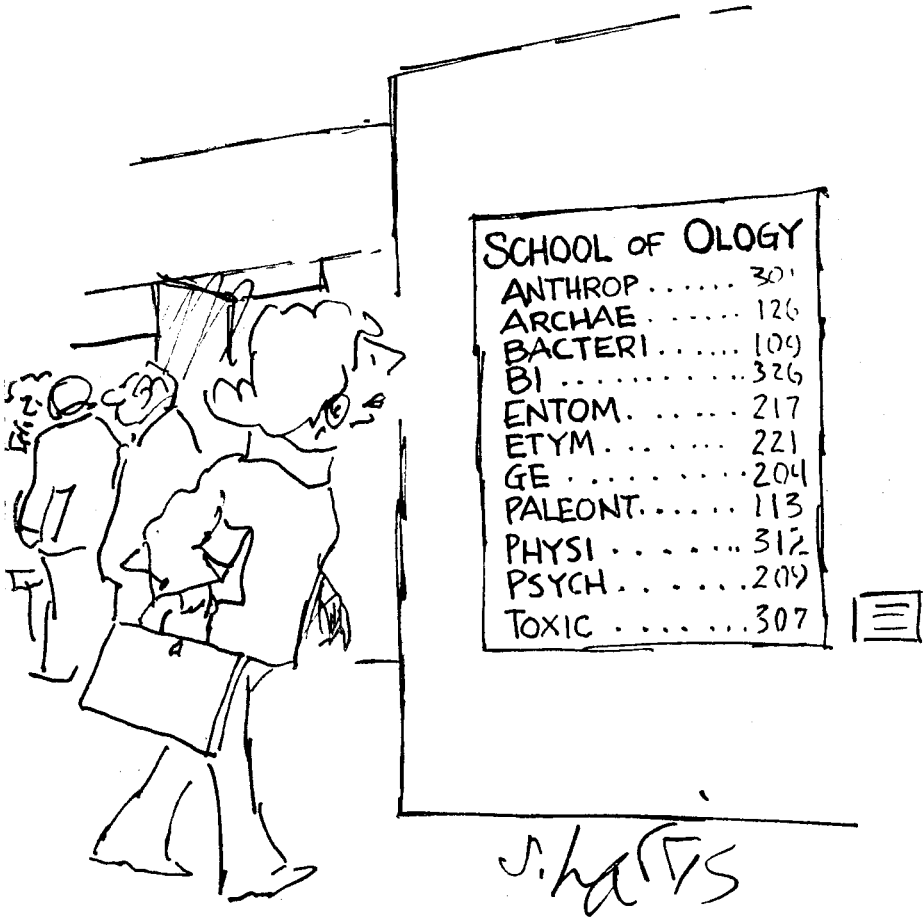 SCHOOL OF OLOGY
ANTHROP ...... 301
ARCHAE ...... 126
BACTERI ...... 109
BI .......... 326
ENTOM ...... 217
ETYM ....... 221
GE .......... 204
PALEONT ...... 113
PHYSI ....... 312
PSYCH ....... 209
TOXIC ....... 307
S. Harris